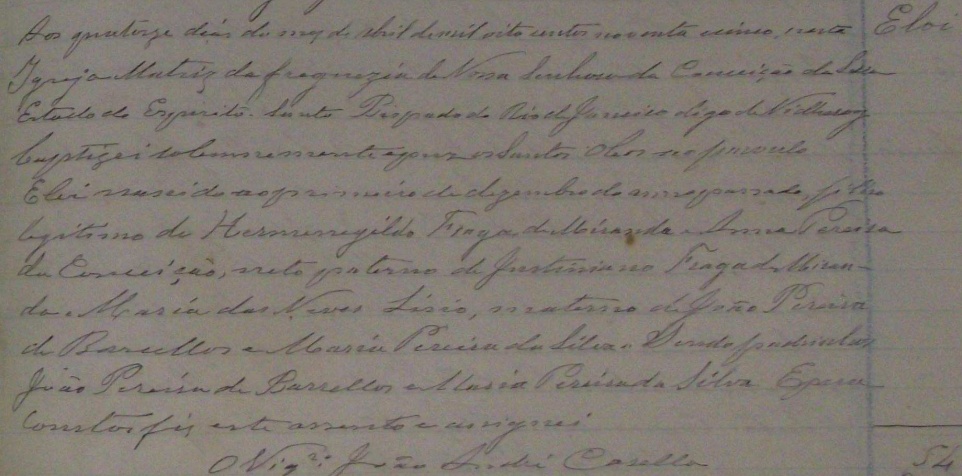 Aos quatorze dias do mez de Abril de mil oito centos noventa e cinco, nesta Eloi
Igreja Matriz da freguezia de Nossa Senhora da Conceição da Serra
Estado do Espirito Santo Bispado do Rio de Janeiro digo de Nictheroy
baptizei solemnemente e puz os Santos Oleos ao parvulo
Eloi nascido ao primeiro de dezembro do anno passado, filho
legitimo de Hermenegildo Fraga de Miranda e Anna Pereira
da Conceição, neto paterno de Justiniano Fraga de Miran-
da e Maria das Neves Lirio, materno de João Pereira
de Barcellos e Maria Pereira da Silva. Sendo padrinhos
João Pereira de Barcellos e Maria Pereira da Silva E para
constar fiz este assento e assignei
O Vig.º: João André Casella 54